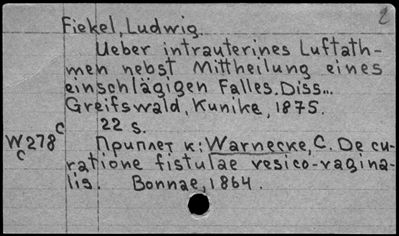 2
Fiekel, Ludwig.
Ueber intrauterines Luftath-
men nebst Mittheilung eines
einschlägigen Falles. Diss...
Greifswald, Kunike, 1875.
22 s.
W278 c
c
Приплет к: Warnecke, C. De cu-
ratione fistulae vesico-vagina-
lis. Bonnae, 1864.